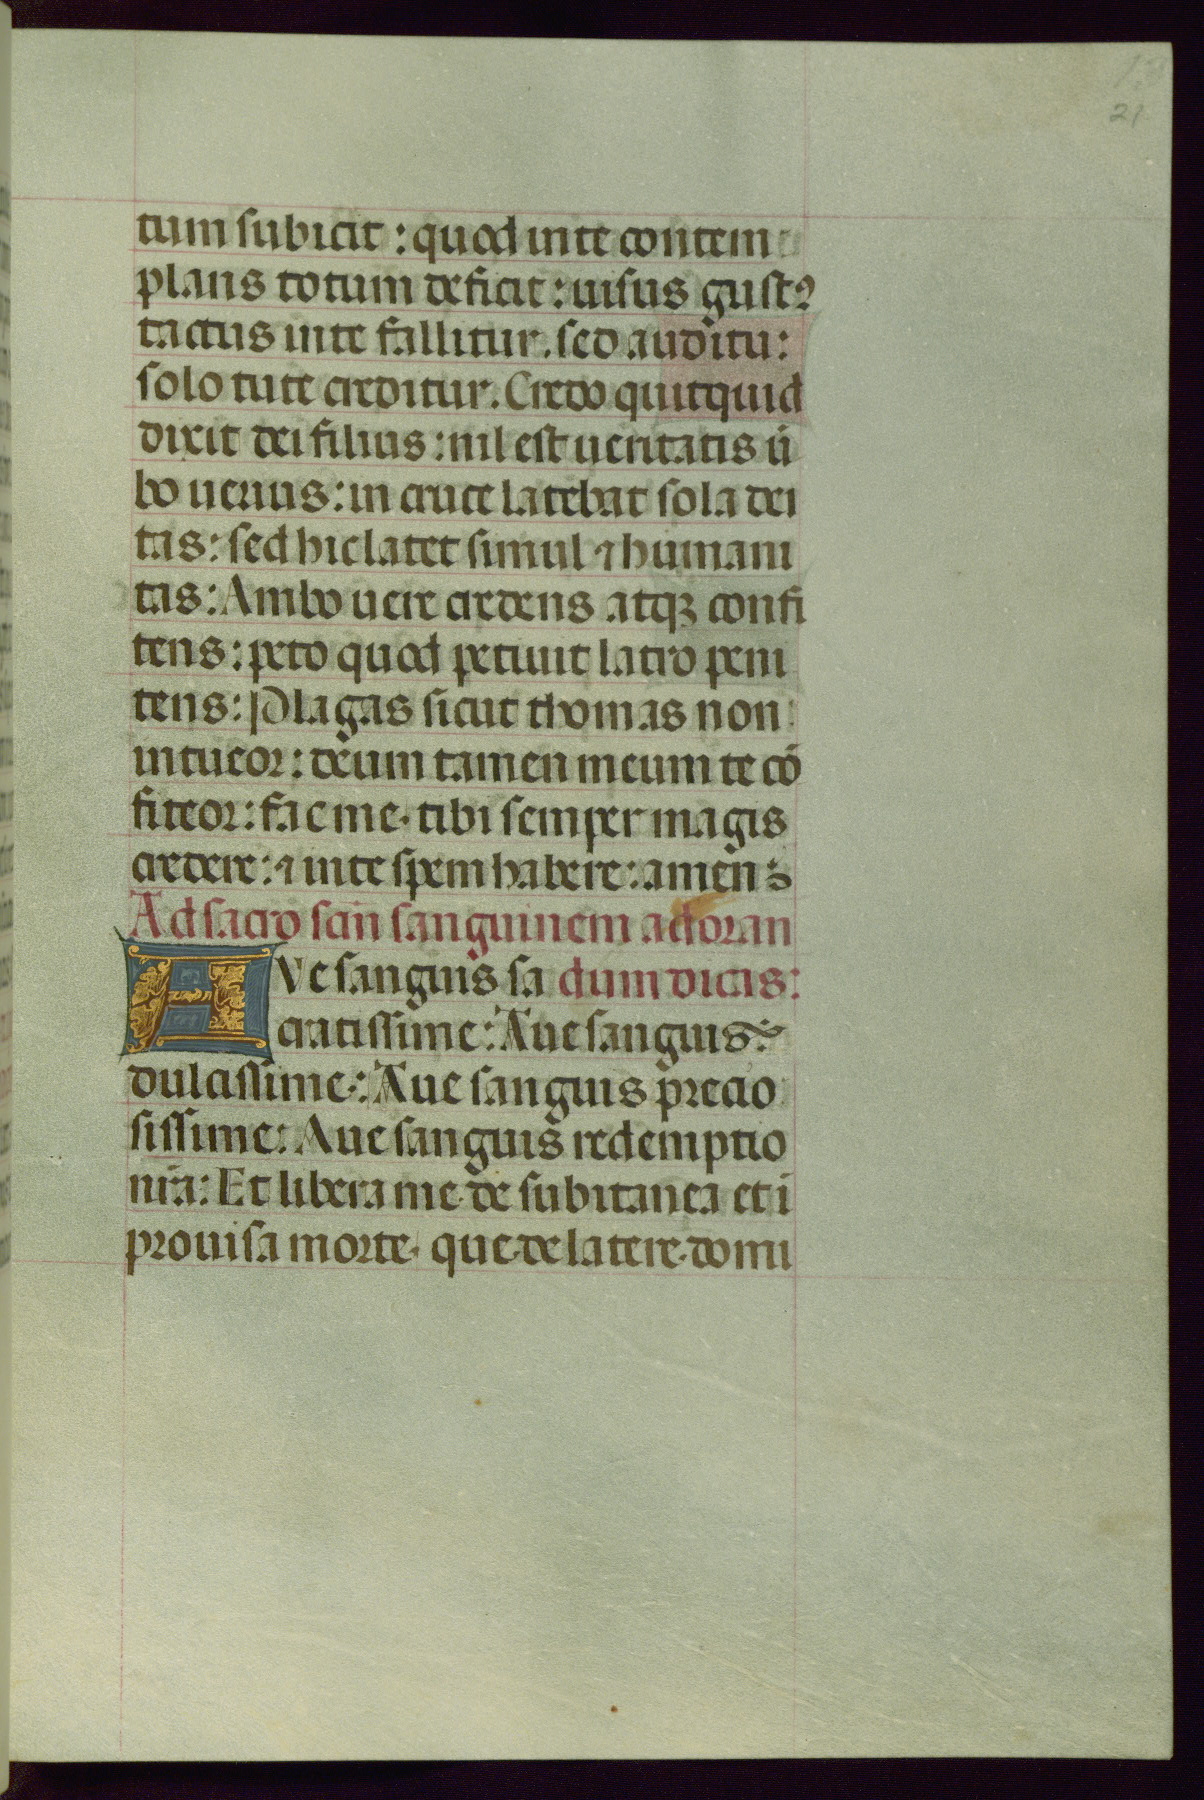 21
tum subicit : quod in te contem
plans totum deficit : uisus gustꝰ
tactus in te fallitur. sed auditu :
solo tute creditur. Credo quitquid
dixit dei filius : nil est ueritatis ū
bo uerius : in cruce latebat sola dei
tas : sed hic latet simul ⁊ humani
tas : Ambo uere credens atqꝫ confi
tens : peto quod petiuit latro peni
tens : Plagas sicut thomas non
intueor : deum tamen meum te cō
fiteor : fac me tibi semper magis
credere : ⁊ in te spem habere : amen
Ad sacro scān sanguinem adoran
AVe sanguis sa dum dicas :
cratissime : Aue sanguis
dulcissime : Aue sanguis precio
sissime : Aue sanguis redemptio
nr̄a : Et libera me de subitanea et i
prouisa morte que de latere domi